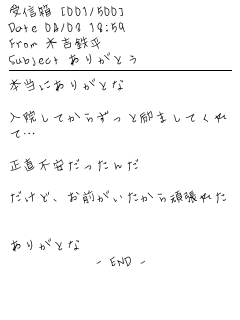 受信箱 [001/500]
Date 08/03 18:59
From 木吉鉄平
Subject ありがとう
本当にありがとな
入院してからずっと励ましてくれ
て…
正直不安だったんだ
だけど、お前がいたから頑張れた
ありがとな
- END -